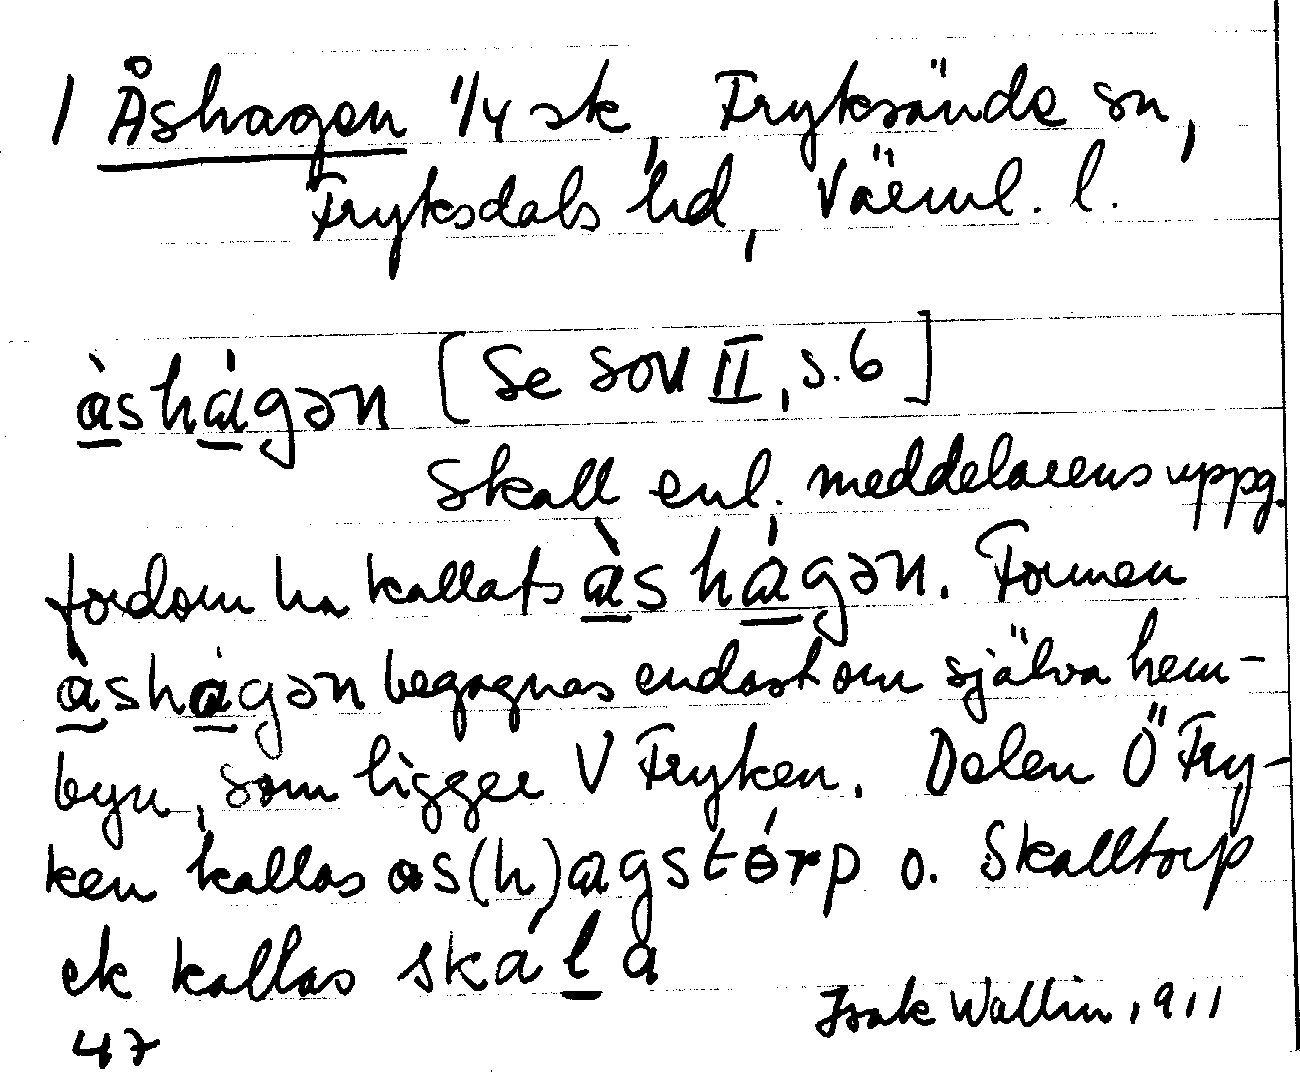 1 Åshagen 1/4 sk, Fryksände sn,
Fryksdals hd, Värml. l.
à̲shá̲gən [Se SOV II, s. 6]
Skall enl. meddelarens uppg.
fordom ha kallats à̲shá̲gən. Formen
à̲shá̲gən begagnas endast om själva hem-
byn, som ligger V Fryken. Delen Ö Fry-
ken kallas as(h)agstórp o. Skalltorp
ek kallas skál̲a
47 Isak Wallin, 1911